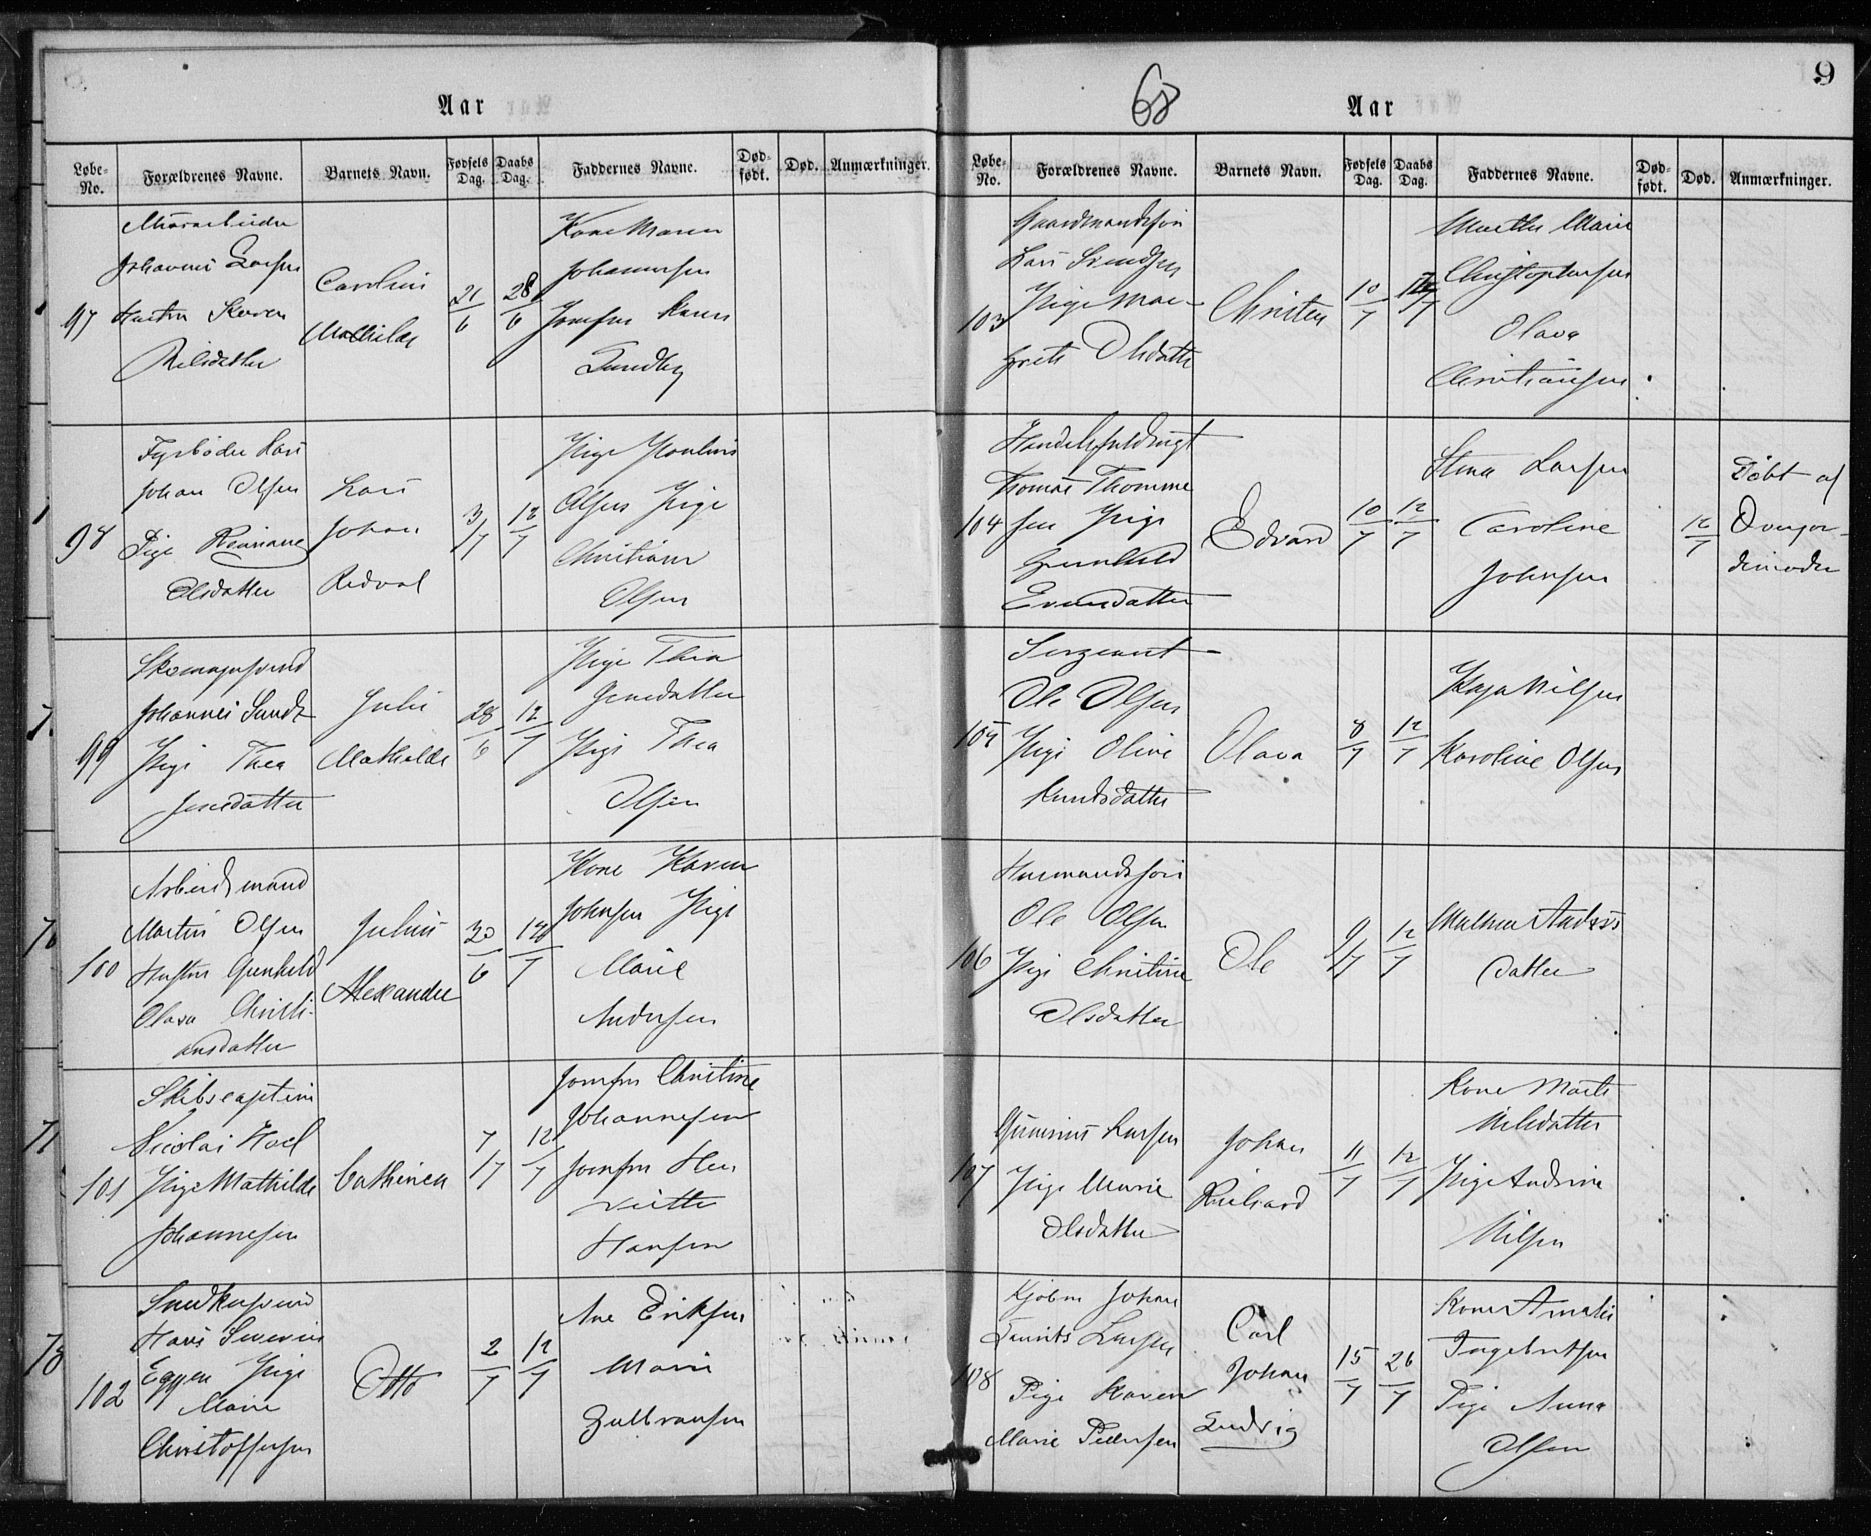 Aar
Løbe-No. Forældrenes Navne. Barnets Navn. Fødsels Dag. Daabs Dag. Faddernes Navne. Død-født. Død. Anmærkninger.
97
Johannes Larsen
Hustru Karen
Nilsdatter
Caroline
Mathilde
21/6
28/6
Kone Maren
Johannesen
Jomfru Karen
Lundby
98
Fyrbøder Lars
Johan Olsen
Pige
Olsdatter
Lars
Johan
3/7
12/7
Pige Pauline
Olsen Pige
Christiane
Olsen
99
Johannes Sundt
Pige Thea
Jensdatter
Julie
Mathilde
28/6
12/7
Pige Thea
Jensdatter
Pige Thea
Olsen
100
Arbeidsmand
Martin Olsen
Hustru Gunhild
Olava Christi-
ansdatter
Julius
Alexander
30/6
12/7
Kone Karen
Johnsen Pige
Marie
Andersen
101
Skibscaptein
Nicolai Hoel
Pige Mathilde
Johannesen
Cathinca
7/7
12/7
Jomfru Christine
Johannesen
Jomfru Hen
riette
Hansen
102
Snedkersvend
Hans Severin
Eggen Pige
Marie
Christoffersen
Otto
2/7
12/7
Ane Eriksen
Marie
Gulbransen
68
Aar
9
Løbe-No. Forældrenes Navne. Barnets Navn. Fødsels Dag. Daabs Dag. Faddernes Navne. Død-født. Død. Anmærkninger.
103
Gaardmandssøn
Lars Svendsen
Pige Mar-
grete Olsdatter
Christen
10/7
Marthe Marie
Christophersen
Olava
Christiansen
104
Handelsfuldmægt
Thomas Thomme
sen Pige
Gunhild
Evensdatter
Edvard
10/7
12/7
Stina Larsen
Caroline
Johnsen
12/7
Døbt af
Overjor-
demoder
105
Sergeant
Ole Olsen
Pige Oline
Knudsdatter
Olava
8/7
12/7
Kaja Nilsen
Karoline Olsen
106
Husmandssøn
Ole Olsen
Pige Christine
Olsdatter
Ole
9/7
12/7
Mathea Anders
datter
107
Larsen
Pige Marie
Olsdatter
Johan
Richard
11/7
12/7
Kone Marte
Nilsdatter
Pige Andrine
Nilsen
108
Kjøbm Johan
Laurits Larsen
Pige Karen
Marie Pettersen
Carl
Johan
Ludvig
15/7
26/7
Kone Amalie
Ingebretsen
Pige Anna
Olsen